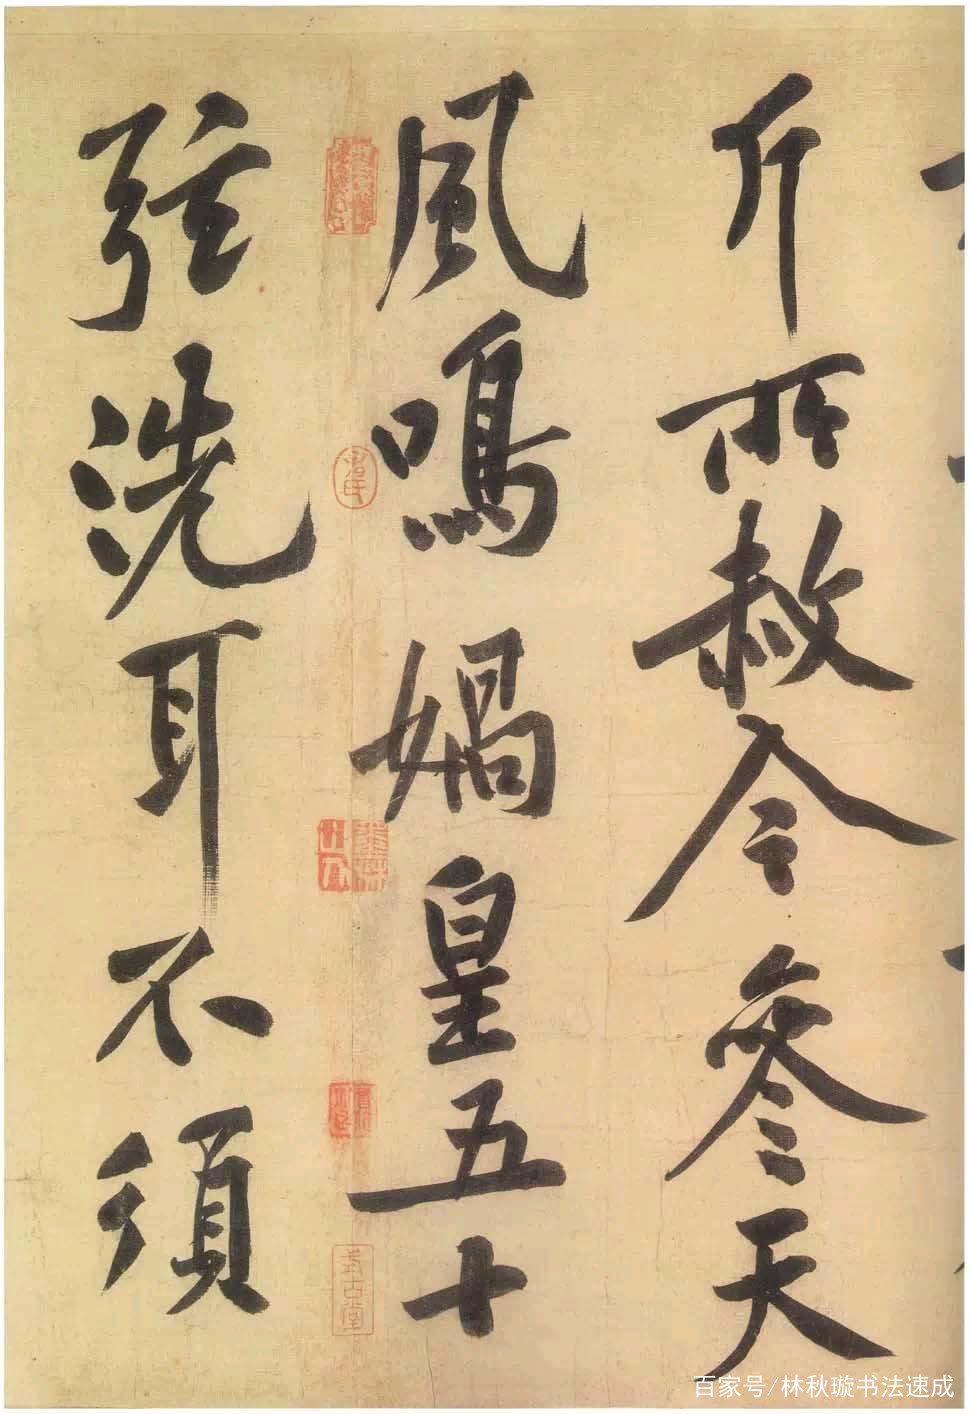 斤所赦今參天
風鳴媧皇五十
弦洗耳不須
式古堂
百家号/林秋璇书法速成